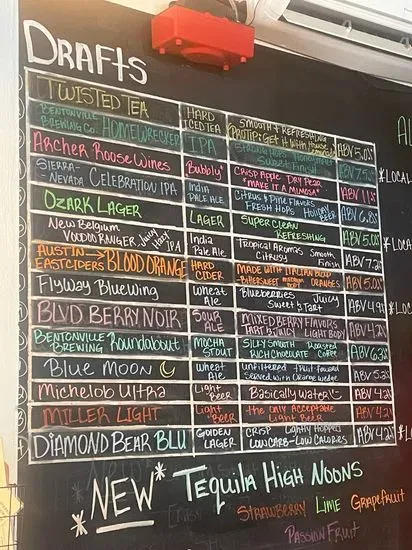 DRAFTS
TWISTED TEA HARD ICED TEA SMOOTH & REFRESHING PROTIP: GET IT WITH HOUSE LEMONADE ABV 5.0%
BENTONVILLE BREWING CO. HOMEWRECKER IPA Finish ABV 7.5% *LOCAL
Archer Roose Wines Bubbly* CRISP Apple Dry Pear *MAKE IT A MIMOSA* ABV 11%
SIERRA-NEVADA CELEBRATION IPA India Pale Ale CITRUS & PINE FLAVORS FRESH HOPS HOLIDAY BEER ABV 6.8%
OZARK LAGER LAGER SUPER CLEAN REFRESHING ABV 5.0% *LOCA
New Belgium VOODOO RANGER Juicy Hazy IPA India Pale Ale Tropical Aromas Smooth Citrusy Finish ABV 7.2%
AUSTIN EASTCIDERS BLOOD ORANGE HARD CIDER MADE WITH ITALIAN BLOOD BITTERSWEET ORANGES ABV 5.0%
Flyway Bluewing Wheat Ale Blueberries Juicy Sweet & Tart ABV 4.9% *LOCA
BLVD BERRY NOIR SOUR ALE MIXED BERRY FLAVORS TART & JUICY LIGHT BODY ABV 4.2%
BENTONVILLE BREWING Roundabout MOCHA STOUT SILKY SMOOTH Roasted RICH CHOCOLATE COFFEE ABV 6.3%
Blue Moon Wheat Ale unfiltered Fruit-forward Served with Orange wedge ABV 5.2%
Michelob Ultra Light Beer Basically water ABV 4.2%
MILLER LIGHT Light Beer the Only Acceptable Light Beer ABV 4.2%
DIAMOND BEAR BLU GOLDEN LAGER CRISP Lightly Hopped LOW CARB-LOW CALORIES ABV 4.2% *LOC
*NEW* TEQUILA HIGH NOONS
STRAWBERRY LIME GRAPEFRUIT
PASSION FRUIT